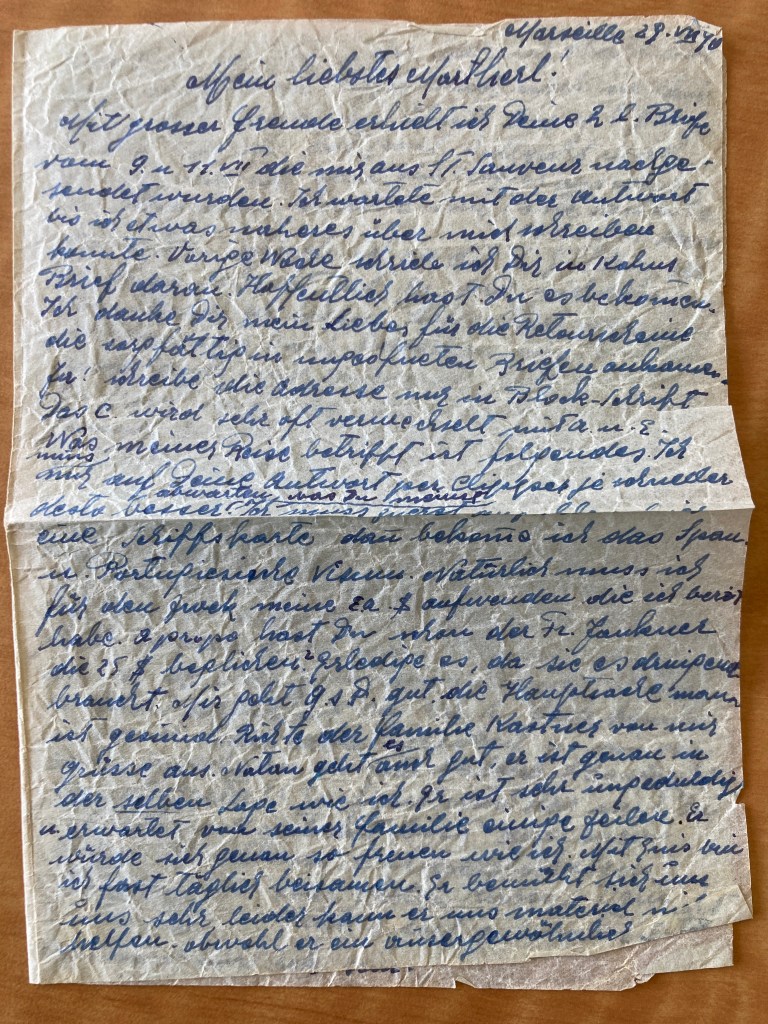 Marseille 29. VII 40
Mein liebstes Martherl!
Mit grosser Freude erhielt ich Deine 2 l. Briefe
vom 9. u 11. VII die mir aus St. Sauveur nachge-
sendet wurden. Ich wartete mit der Antwort
bis ich etwas naheres über mich schreiben
konnte. Vorige Woche schrieb ich Dir in Kohns
Brief daran. Hoffentlich hast Du es bekomen.
Ich danke Dir mein Liebes für die Retourscheine
die sorgfältig in Briefen ankamen.
schreibe die Adresse nur in Block-Schrift
Das C. wird sehr oft verwechselt mit a. u. E.
Was meiner Reise betrifft ist folgendes. Ich
muss
nur auf Deine Antwort per Clipper je schneller
abwarten was Du meinst
desto besser. Ich muss zuerst
eine Schiffskarte dan bekome ich das Span.
u. Portugiesische Visum. Natürlich muss ich
für den Zweck meine $ aufwenden die ich
habe. apropo hast Du schon der Fr.
die 25 $ beglichen? Erledige es, da sie es dringend
braucht. Mir geht g. s. D. gut, die Hauptsache man
ist gesund. Richte der Familie Kastner von mir
grüsse aus. Natan geht es gut, er ist genau in
der selben Lage wie ich. Er ist sehr ungeduldig
u. erwartet von seiner Familie einige Zeilen. Er
würde sich genau so freuen wie ich. Mit bin
ich fast täglich beisamen. Er bemüht sich um
uns sehr leider kann er uns materiel
helfen. obwohl er ein aussergewöhnlich